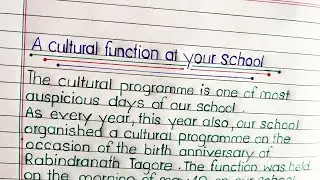 A cultural function at your school
The cultural programme is one of most
auspicious days of our school.
As every year, this year also, our school
organished a cultural programme on the
occasion of the birth anniversary of
Rabindranath Tagore. The function was held
on the morning of may 10 on our school